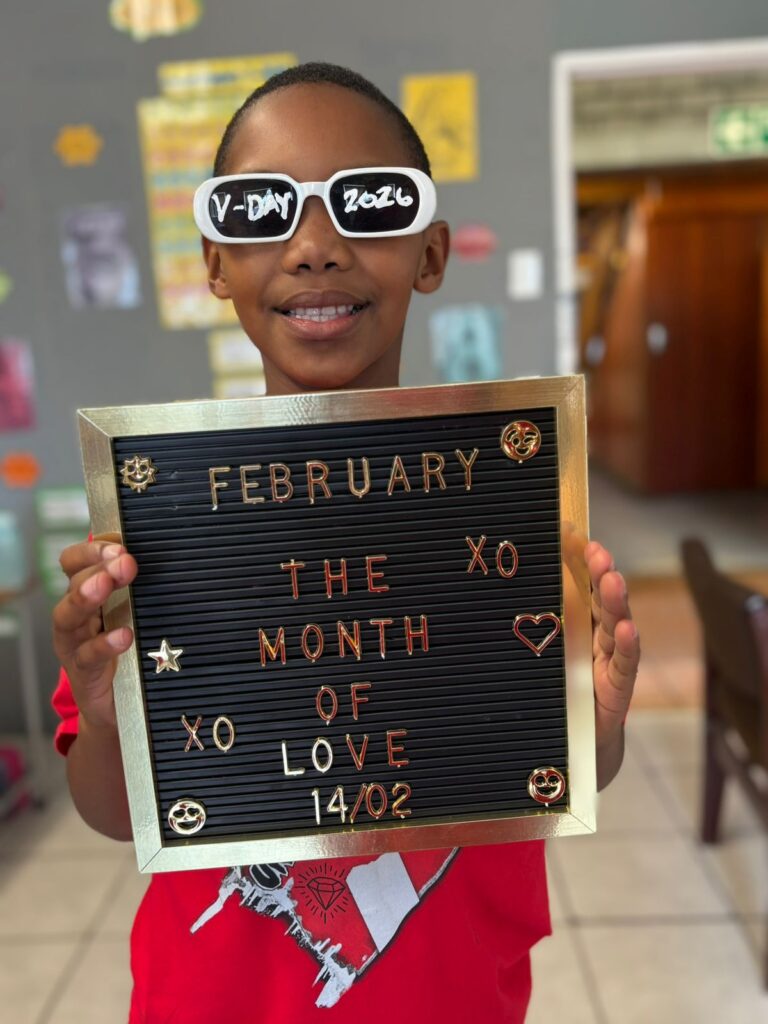 V-DAY 2026
FEBRUARY
THE XO
MONTH
OF
XO
LOVE
14/02